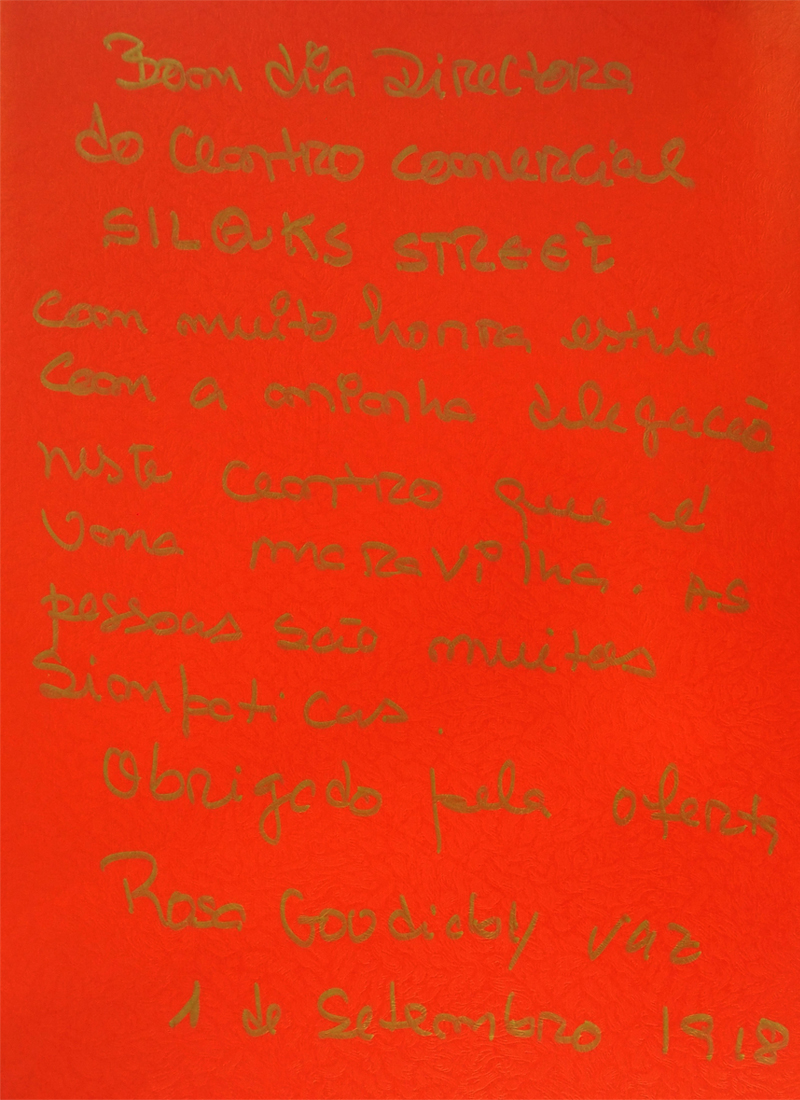 Bom dia Directora
do Centro comercial
SILQKS STREET
com muito honra estive
com a minha delegacão
neste centro que é
Uma maravilha. As
pessoas são muitas
Simpaticas.
Obrigado pela oferta
Rosa Goudiaby vaz
1 de Setembro 1918